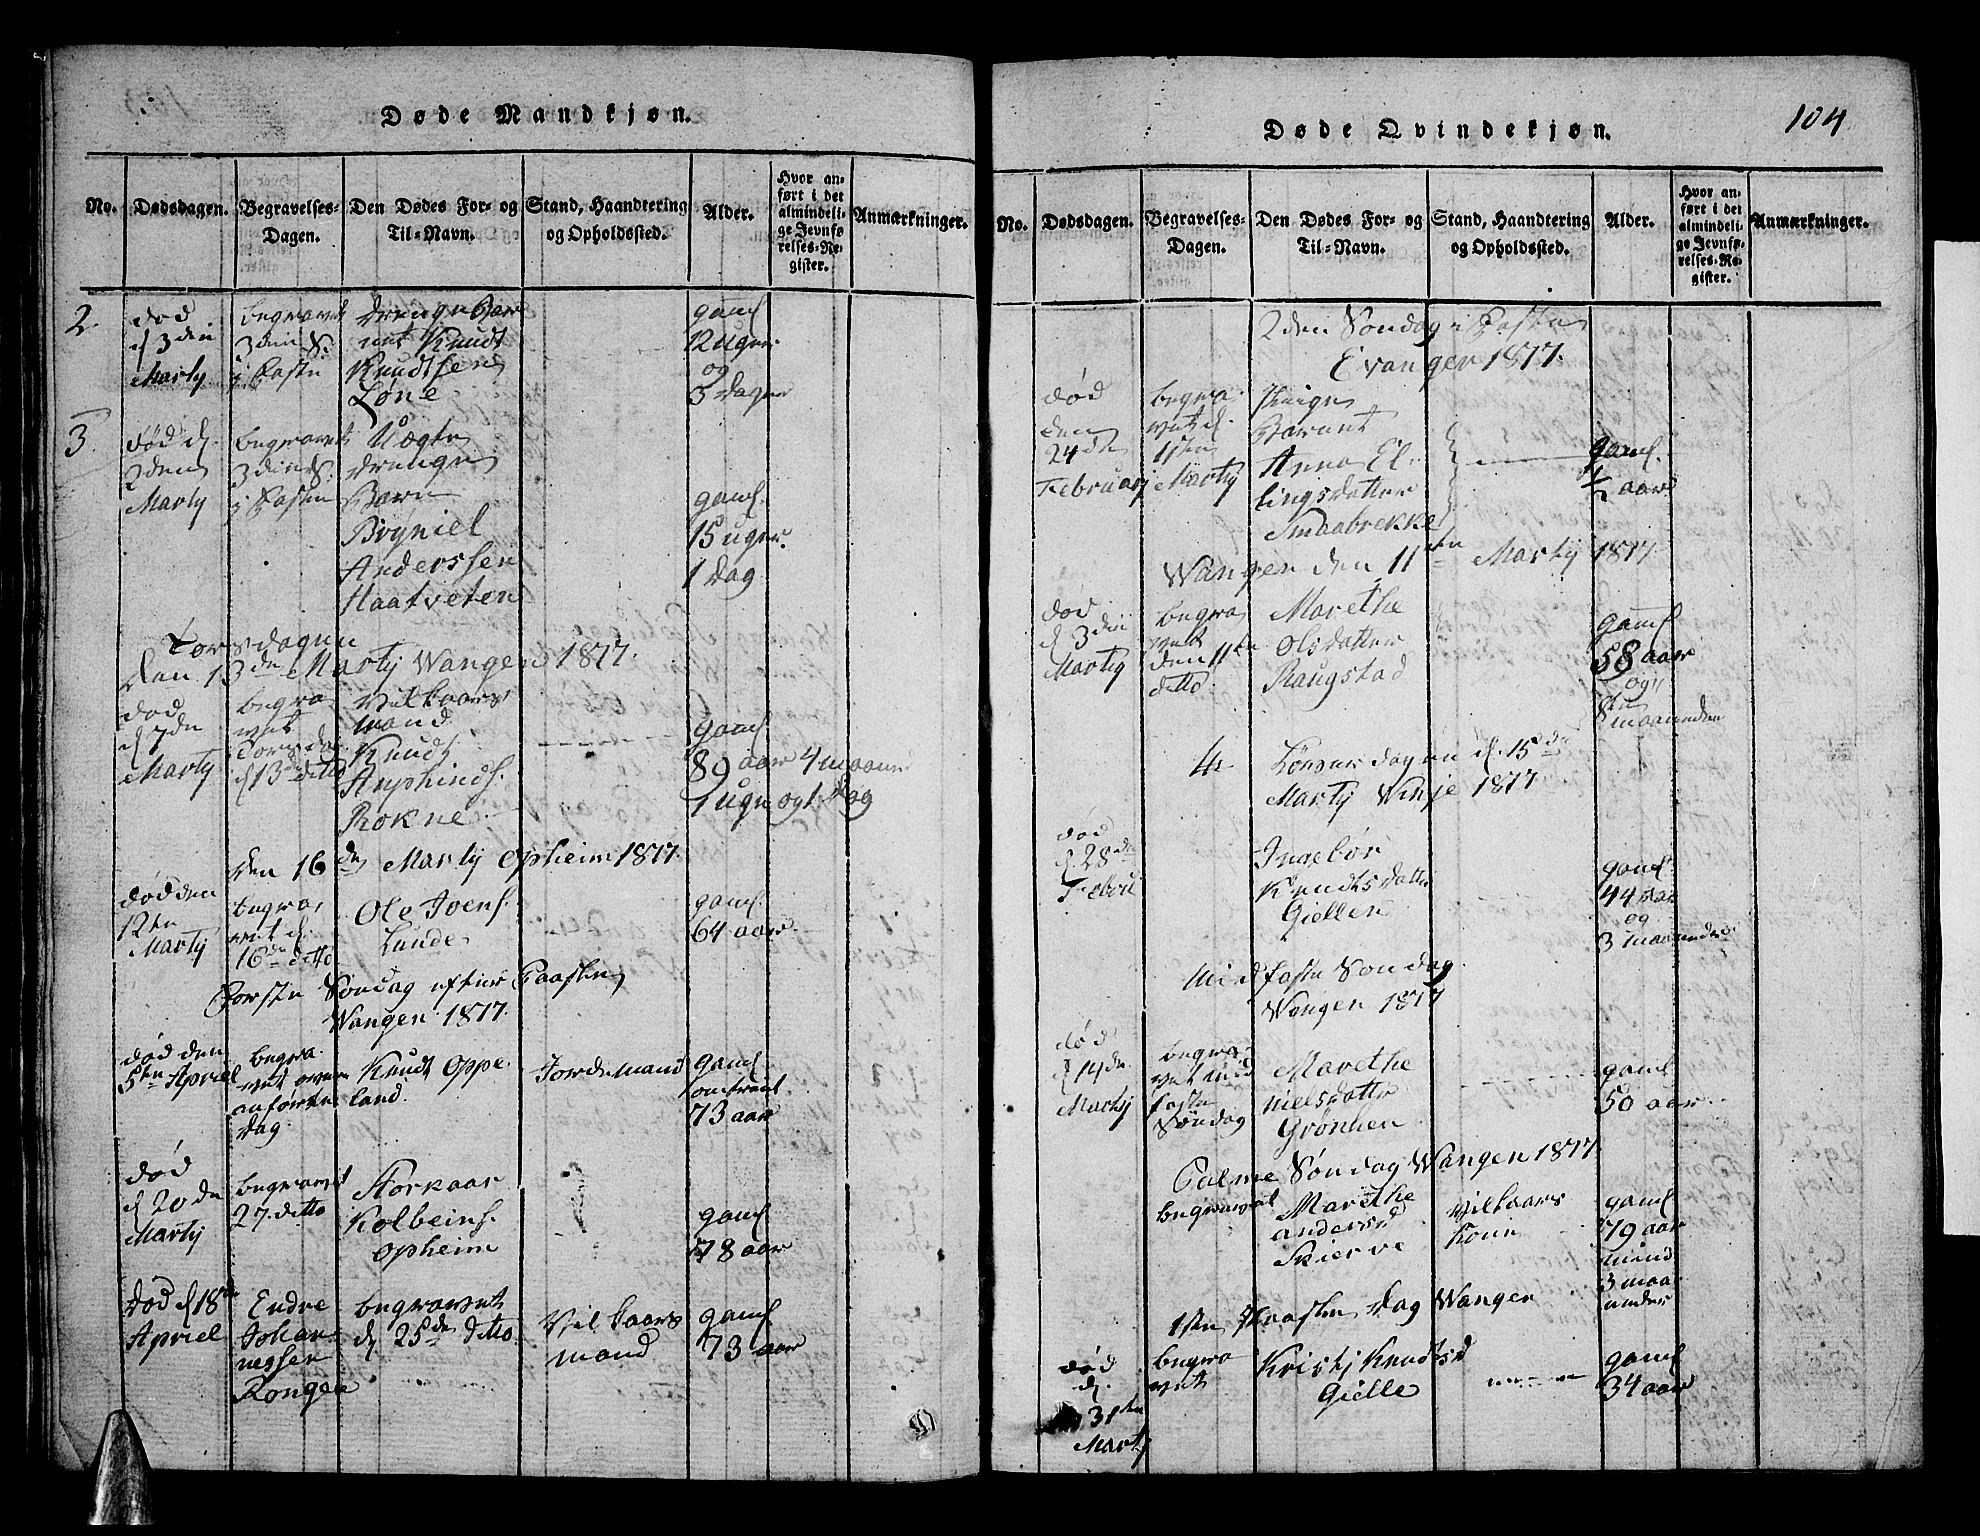 Døde Mandkjøn.
No.
Dødsdagen.
Begravelses-
Dagen.
Den Dødes For- og
Til-Navn.
Stand, Haandtering
og Opholdssted.
Alder.
Hvor an-
ført i det
almindeli-
ge Jevnfø-
relses-Re-
gister.
Anmærkninger.
2
død
d 3die
Martij
begravet
3die S.
i Faste
drenge Bar
net Knudt
Knudtsen
Løne
gaml
12 uger
og
3 dager
3
død d.
2den
Martij
begravet
3die S.
i Fasten
drenge
Barn
Bryniel
Anderssen
Haatveten
gaml.
15 uger.
1 dag
Torsdagen
den 13de Martij Wangen 1817.
død
d 7de
Martij
begra
vet
Torsdag
d 13de ditto
Vilkaars
mand
Knudt
Arphinds.
Rokne
gaml
89 aar 4 maaner
1 uge og 1 dag
den 16de Martij Opheim 1817.
død den
12te
Martij
begra
vet d.
16de ditto
Ole Joens.
Lunde
gaml
64 aar
Første Søndag efter Paasken
Wangen 1817.
død den
5te Apriel
begra
vet oven
anførte
dag.
Knudt Oppe
land.
Jordemand
gaml
omtrent
73 aar
død
d 20de
Martij
begravet
27. ditto
Storkaar
Kolbeins.
Opheim
gaml
78 aar
død d 18de
Apriel
Endre
Johan-
nessen
Rongen
begravet
d 25de ditto
Vilkaars
mand
gaml
73 aar
Døde Qvindekjøn.
104
No.
Dødsdagen.
Begravelses-
Dagen.
Den Dødes For- og
Til-Navn.
Stand, Haandtering
og Opholdssted.
Alder.
Hvor an-
ført i det
almindeli-
ge Jevnfø-
relses-Re-
gister.
Anmærkninger.
2den Søndag i Faste
Evanger 1817.
død
den
24de
Februarj
begra
vet d.
1ste
Martij
Pige
Barnet
Anna El-
lingsdatter
Smaabrekke
gaml.
1/2 aar
Wangen den 11te Martij 1817.
død
d 3die
Martij
begra
vet
den 11te
ditto
Marethe
Olsdatter
Raugstad
gaml
58 aar
og
8 maaneder
4.
Løverdagen d. 15de
Martij Winje 1817
død
d. 28de
Febru
Ingebor
Knudtsdatter
Giellen
gaml
44 aar
og
3 maaneder
Midfaste Søndag
Wangen 1817
død
d 14de
Martij
begra
vet mid
faste
Søndag
Marethe
Nielsdatter
Grønlien
gaml
50 aar
Palme Søndag Wangen 1817.
begravet
Marethe
andersd
Skierve
Vilkaars
Kone
gaml
79 aar
mind
3 maa
neder
1ste Paaske Dag Wangen
død
d.
31te
Martj
begra
vet
Kristj Knudtsd
Gielle
gaml
34 aar